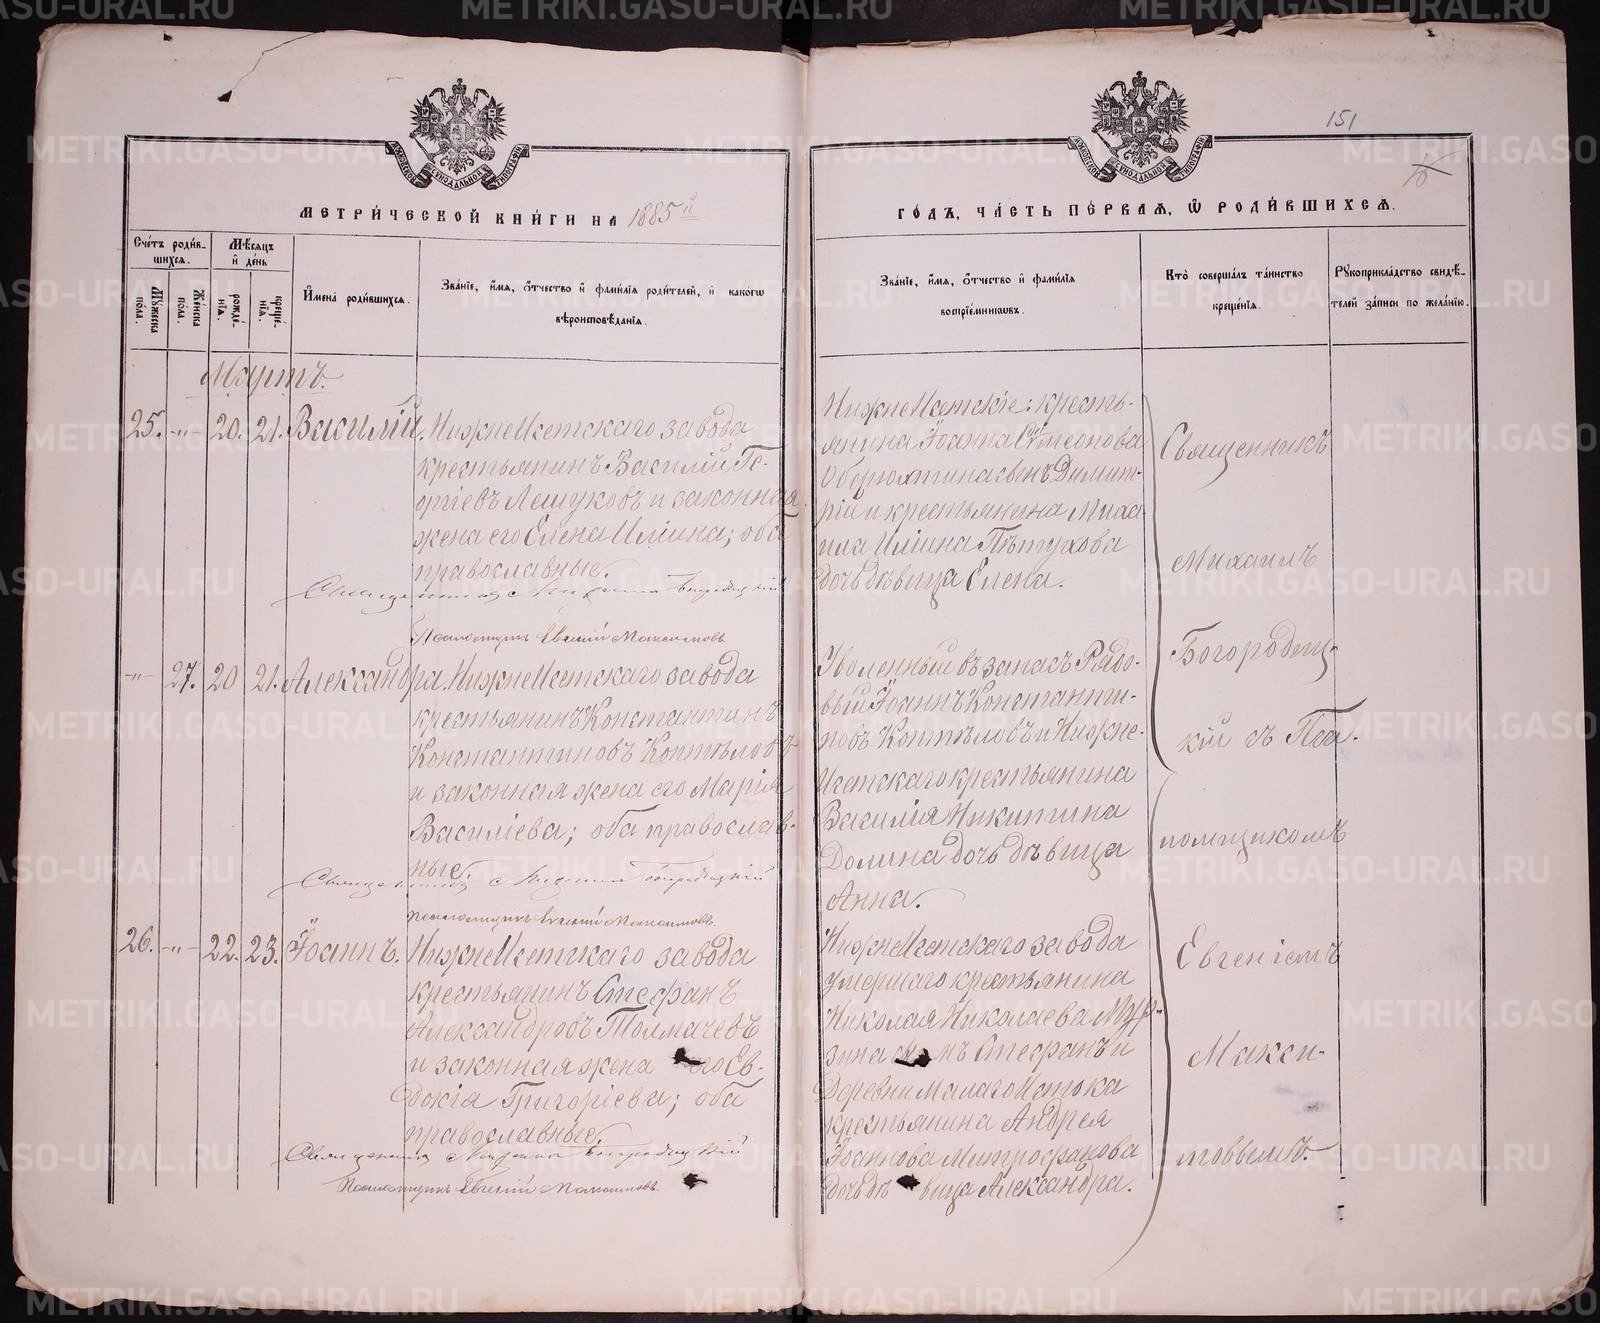 151
15
МЕТРИ́ЧЕСКОЙ КНИ́ГИ НА 1885й
ГО́ДЪ, ЧА́СТЬ ПЕ́РВАЯ, Ѿ РОДИ́ВШИХСЯ.
Сче́тъ роди́в-
шихся.
Мꙋжеска пола.
Же́нска пола.
Мѣ́сяцъ
и҆ де́нь
рожде́-
нїя.
креще́-
нїя.
И҆мена̀ роди́вшихся.
Зва́нїе, и҆́мя, ѻ҆́тчество и҆ фами́лїя роди́телей, и҆ како́гѡ
вѣроисповѣ́данїя.
Зва́нїе, и҆́мя, ѻ҆́тчество и҆ фами́лїя
воспрїе́мникѡвъ.
Кто̀ соверша́лъ та́инство
креще́нїя.
Рꙋкоприкла́дство свидѣ́-
телей за́писи по жела́нїю.
Мартъ.
25. -"- 20. 21. Василій. НижнеИсетскаго завода
крестьянинъ Василій Ге-
оргіевъ Лешуковъ и законная
жена его Елена Иліина; оба
православные.
Священникъ Михаилъ Богородицкій
Псаломщикъ Евгеній Максимовъ.
НижнеИсетскіе: кресть-
янина Іоанна Сѵмеонова
Оберюхтина сынъ Димит-
рій и крестьянина Миха-
ила Иліина Пѣтухова
дочь дѣвица Елена.
-"- 27. 20 21. Александра. НижнеИсетскаго завода
крестьянинъ Константинъ
Константиновъ Коптѣловъ
и законная жена его Марія
Василіева; оба православ-
ные.
Священникъ Михаилъ Богородицкій
Псаломщикъ Евгеній Максимовъ.
Уволенный въ запасъ Рядо-
вый Іоаннъ Константи-
новъ Коптѣловъ и Нижне-
Исетскаго крестьянина
Василія Никитина
Долина дочь дѣвица
Анна.
26. -"- 22. 23. Іоаннъ. НижнеИсетскаго завода
крестьянинъ Стефанъ
Александровъ Толмачевъ
и законная жена его Ев-
докія Григоріева; оба
православные.
Священникъ Михаилъ Богородицкій
Псаломщикъ Евгеній Максимовъ.
НижнеИсетскаго завода
умершаго крестьянина
Николая Николаева Мур-
зина сынъ Стефанъ и
Деревни Малаго Истока
крестьянина Андрея
Іоаннова Митрофанова
дочь дѣвица Александра.
Священникъ
Михаилъ
Богородиц-
кій съ Пса-
ломщикомъ
Евгеніемъ
Макси-
мовымъ.
METRIKI.GASO-URAL.RU